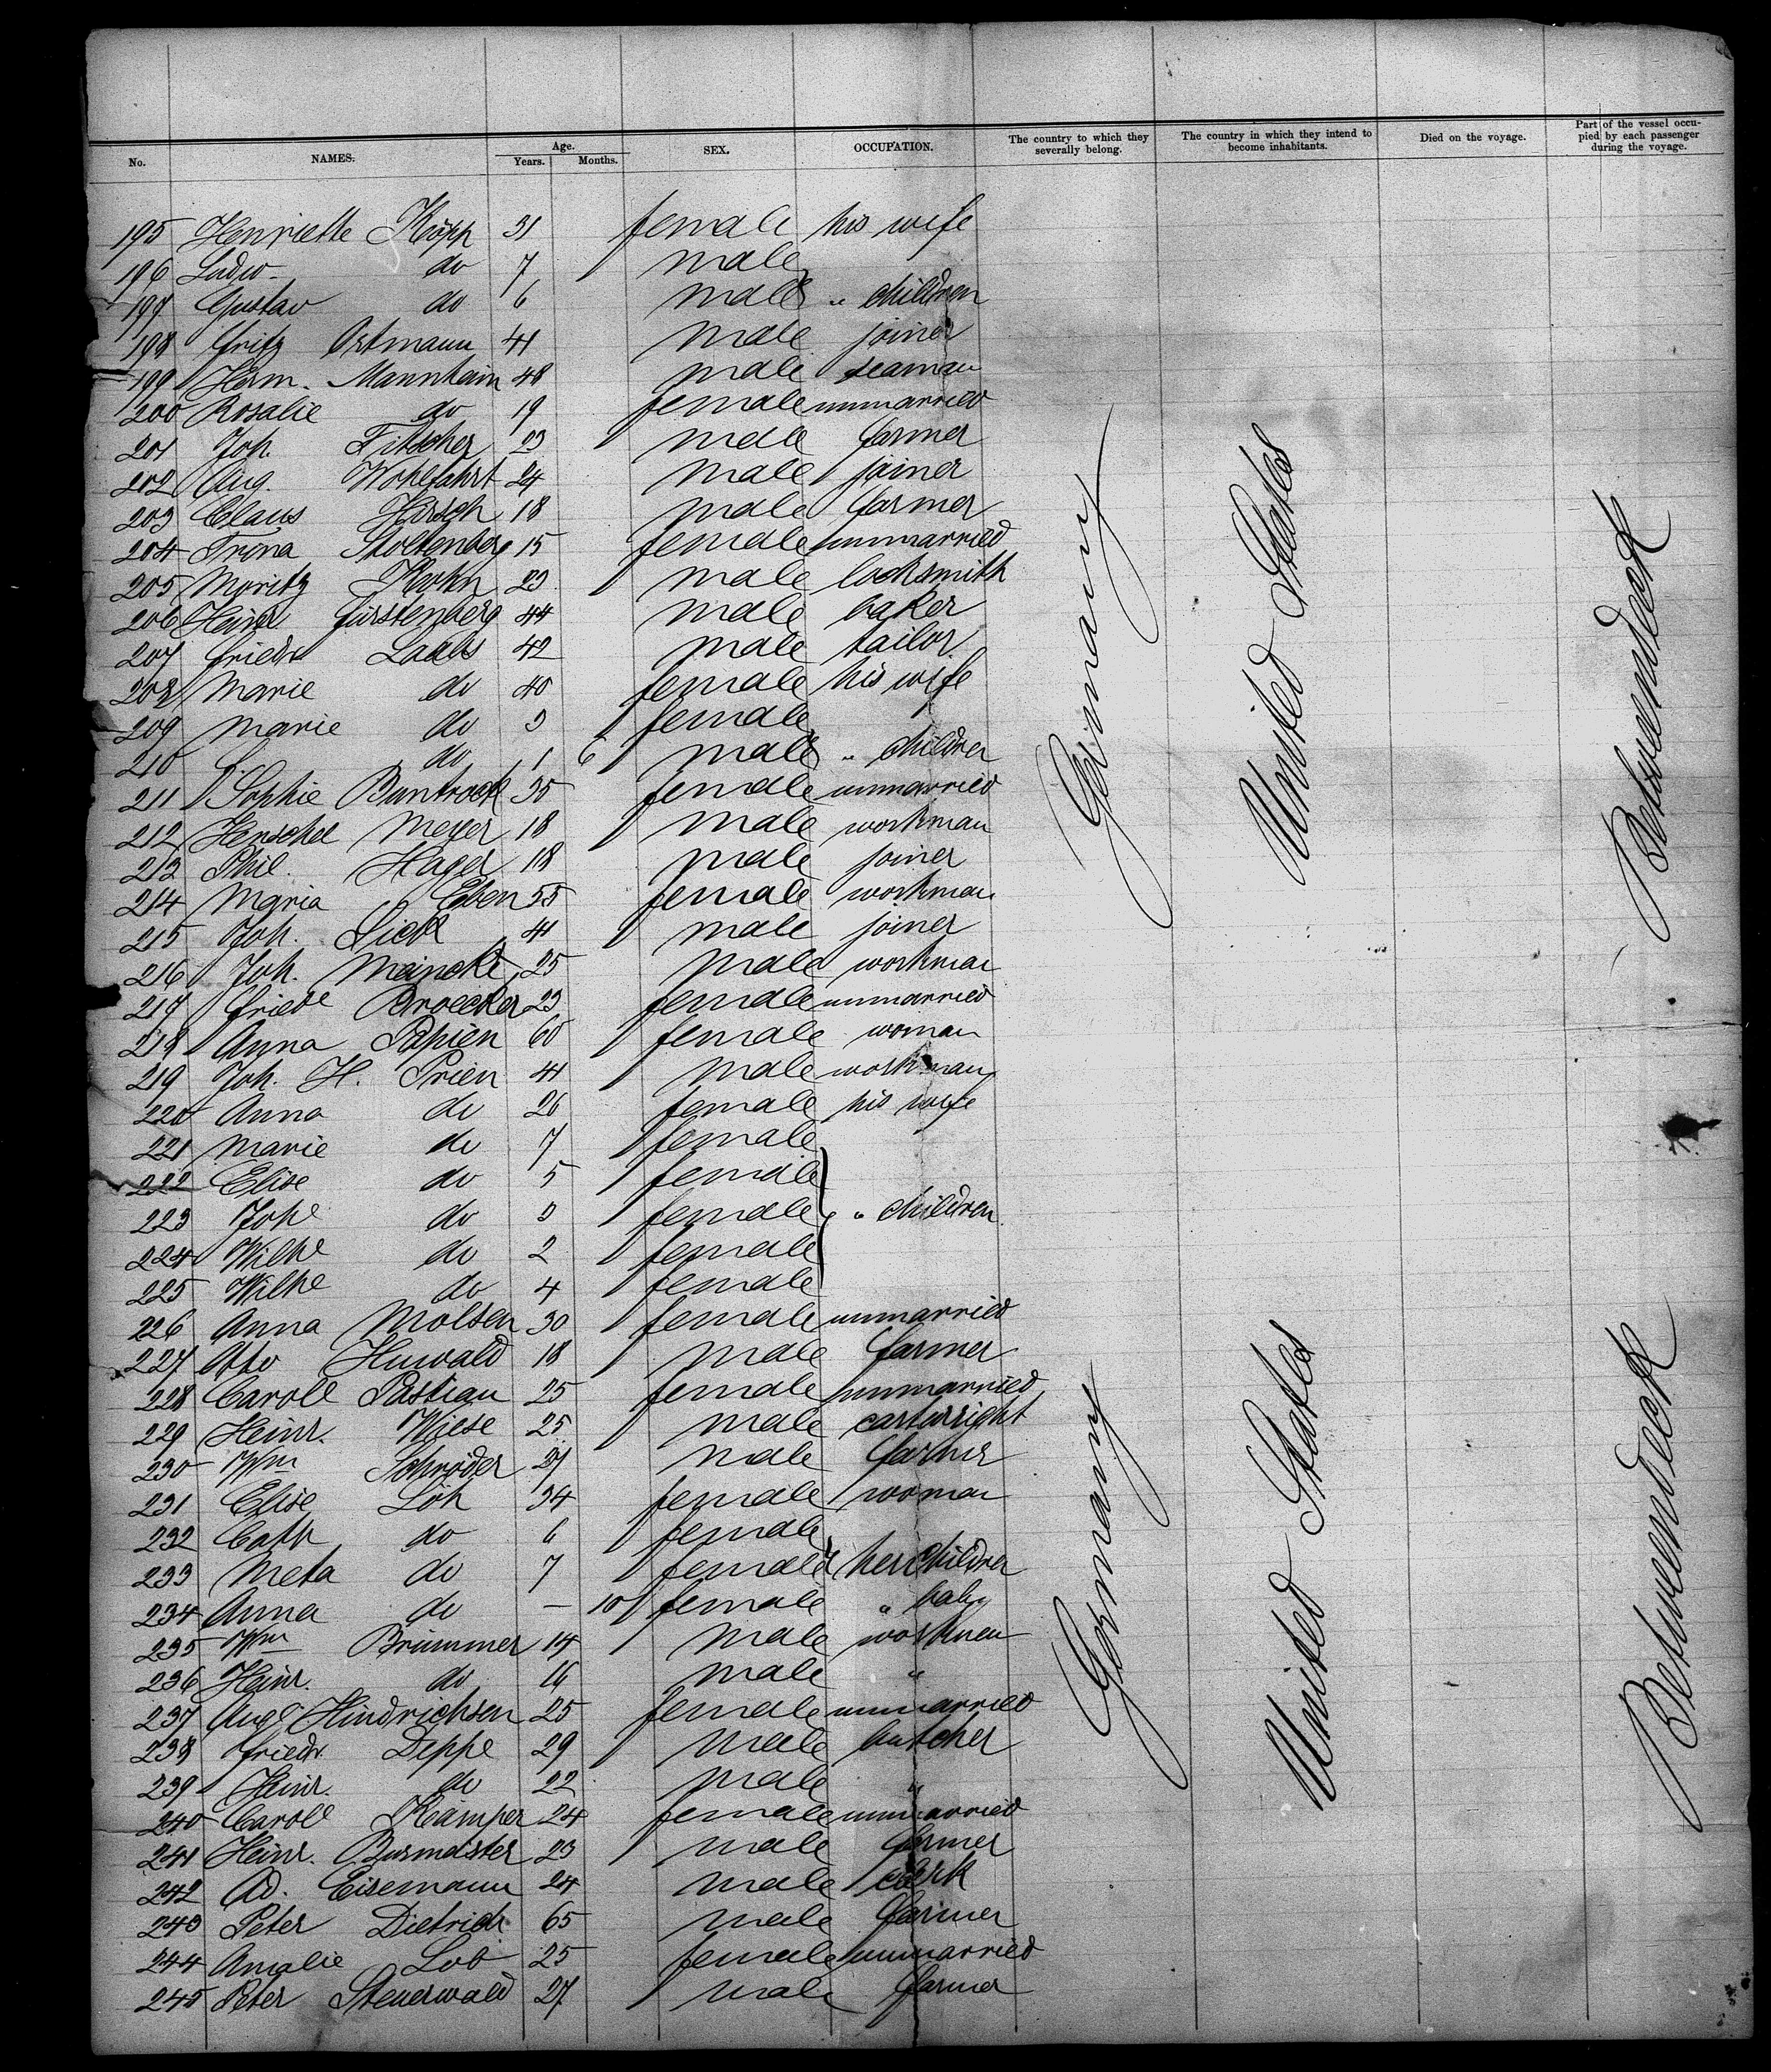 No. NAMES. Age. Years. Months. SEX. OCCUPATION. The country to which they severally belong. The country in which they intend to become inhabitants. Died on the voyage. Part of the vessel occupied by each passenger during the voyage.
195 Henriette Köpp 31 female his wife
196 Ludw. do 7 male
197 Gustav do 6 male " children
198 Fritz Ostmann 41 male joiner
199 Herm. Mannheim 48 male seaman
200 Rosalie do 19 female unmarried
201 Joh. Fitscher 23 male farmer
202 Aug. Wohlfahrt 24 male joiner
203 Claus Hirsch 18 male farmer
204 Trina Stoltenberg 15 female unmarried
205 Moritz Krohn 23 male locksmith
206 Heinr Fürstenberg 44 male baker
207 Friedr Laabs 42 male tailor
208 Marie do 40 female his wife
209 Marie do 3 female
210 do 1 6 male " children
211 Sophie Buntrock 35 female unmarried
212 Herschel Meyer 18 male workman
213 Phil. Hager 18 male joiner
214 Maria Eben 55 female workman
215 Joh. Sick 41 male joiner
216 Joh. Meincke 25 male workman
217 Friede Broecker 23 female unmarried
218 Anna Papien 60 female woman
219 Joh. H. Prien 41 male workman
220 Anna do 26 female his wife
221 Marie do 7 female
222 Elise do 5 female
223 Johe do 3 female " children
224 Wilhe do 2 female
225 Wilhe do 4 female
226 Anna Molsen 30 female unmarried
227 Otto Huwald 18 male farmer
228 Carole Pastian 25 female unmarried
229 Heinr. Wiese 25 male cartwright
230 Wm Schröder 27 male farmer
231 Elise Löh 34 female woman
232 Cath do 6 female
233 Meta do 7 female her children
234 Anna do — 10 female " baby
235 Wm Brümmer 14 male workman
236 Heinr. do 16 male "
237 Auge Hindrichsen 25 female unmarried
238 Friedr. Deppe 29 male butcher
239 Heinr. do 22 male "
240 Carole Kämper 24 female unmarried
241 Heinr. Burmeister 23 male farmer
242 Ad. Eisemann 24 male clerk
243 Peter Dietrich 65 male farmer
244 Amalie Lob 25 female unmarried
245 Peter Steuerwald 27 male farmer
Germany United States Betweendeck
Germany United States Betweendeck